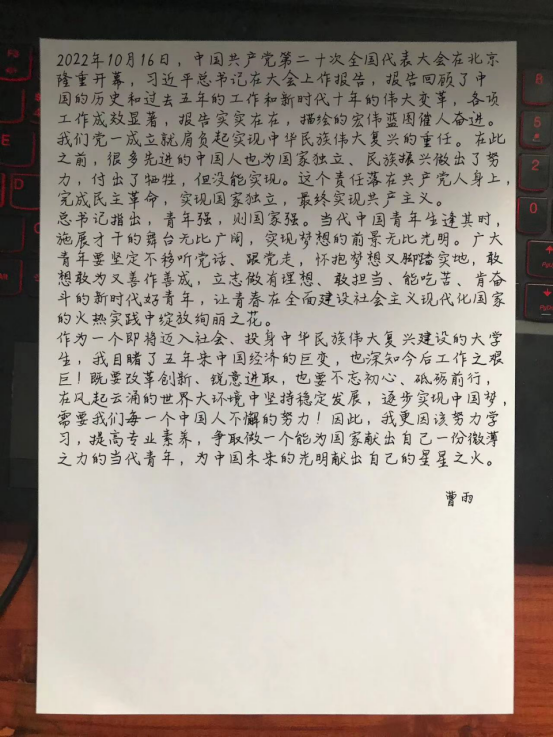 2022年10月16日，中国共产党第二十次全国代表大会在北京
隆重开幕，习近平总书记在大会上作报告，报告回顾了中
国的历史和过去五年的工作和新时代十年的伟大变革，各项
工作成效显著，报告实实在在，描绘的宏伟蓝图催人奋进。
我们党一成立就肩负起实现中华民族伟大复兴的重任。在此
之前，很多先进的中国人也为国家独立、民族振兴做出了努
力，付出了牺牲，但没能实现。这个责任落在共产党人身上，
完成民主革命，实现国家独立，最终实现共产主义。
总书记指出，青年强，则国家强。当代中国青年生逢其时，
施展才干的舞台无比广阔，实现梦想的前景无比光明。广大
青年要坚定不移听党话、跟党走，怀抱梦想又脚踏实地，敢
想敢为又善作善成，立志做有理想、敢担当、能吃苦、肯奋
斗的新时代好青年，让青春在全面建设社会主义现代化国家
的火热实践中绽放绚丽之花。
作为一个即将迈入社会、投身中华民族伟大复兴建设的大学
生，我目睹了五年来中国经济的巨变，也深知今后工作之艰
巨！既要改革创新、锐意进取，也要不忘初心、砥砺前行，
在风起云涌的世界大环境中坚持稳定发展，逐步实现中国梦，
需要我们每一个中国人不懈的努力！因此，我更因该努力学
习，提高专业素养，争取做一个能为国家献出自己一份微薄
之力的当代青年，为中国未来的光明献出自己的星星之火。
曹雨
8
5
2
D
E